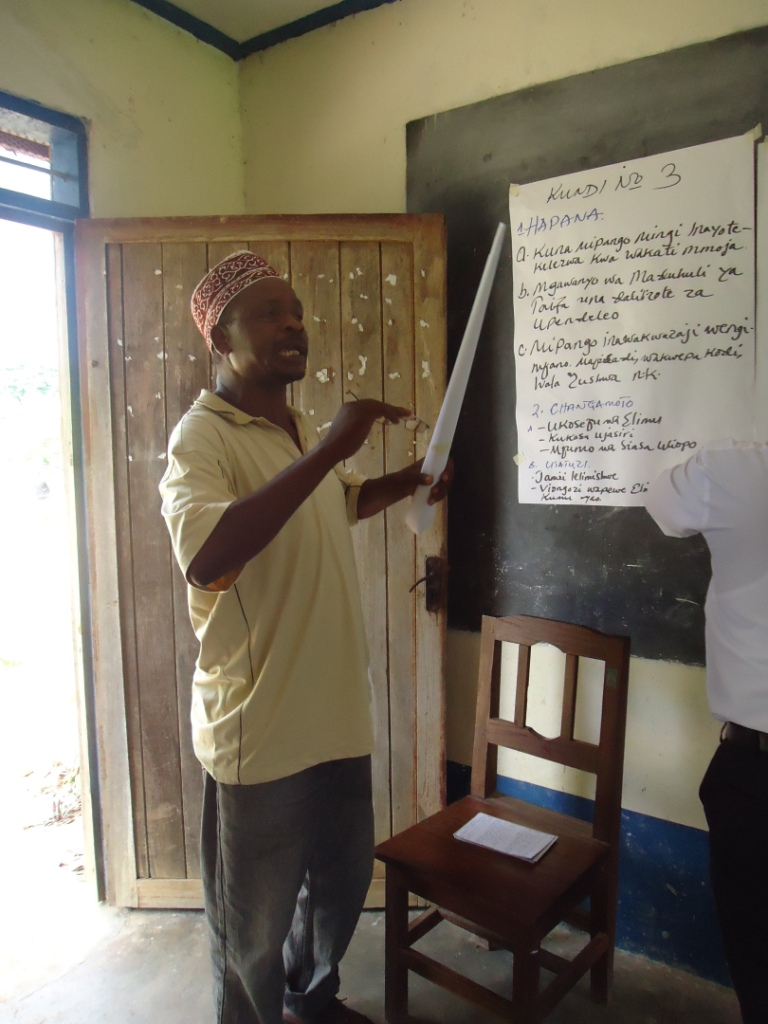 KUNDI No 3
1. HAPANA.
a. Kuna mipango mingi inayote-
kelezwa kwa wakati mmoja
b. Mgawanyo wa Matumizi ya
Taifa una za
upendeleo
c. Mipango inawakwaza wengi.
mfano. wakwepa kodi,
wala rushwa nk.
2. CHANGAMOTO
A - Ukosefu wa Elimu
- Kukosa ujasiri
- Mfumo wa Siasa uliopo
B. UTATUZI
- Jamii ielimishwe
- Viongozi wapewe Eli